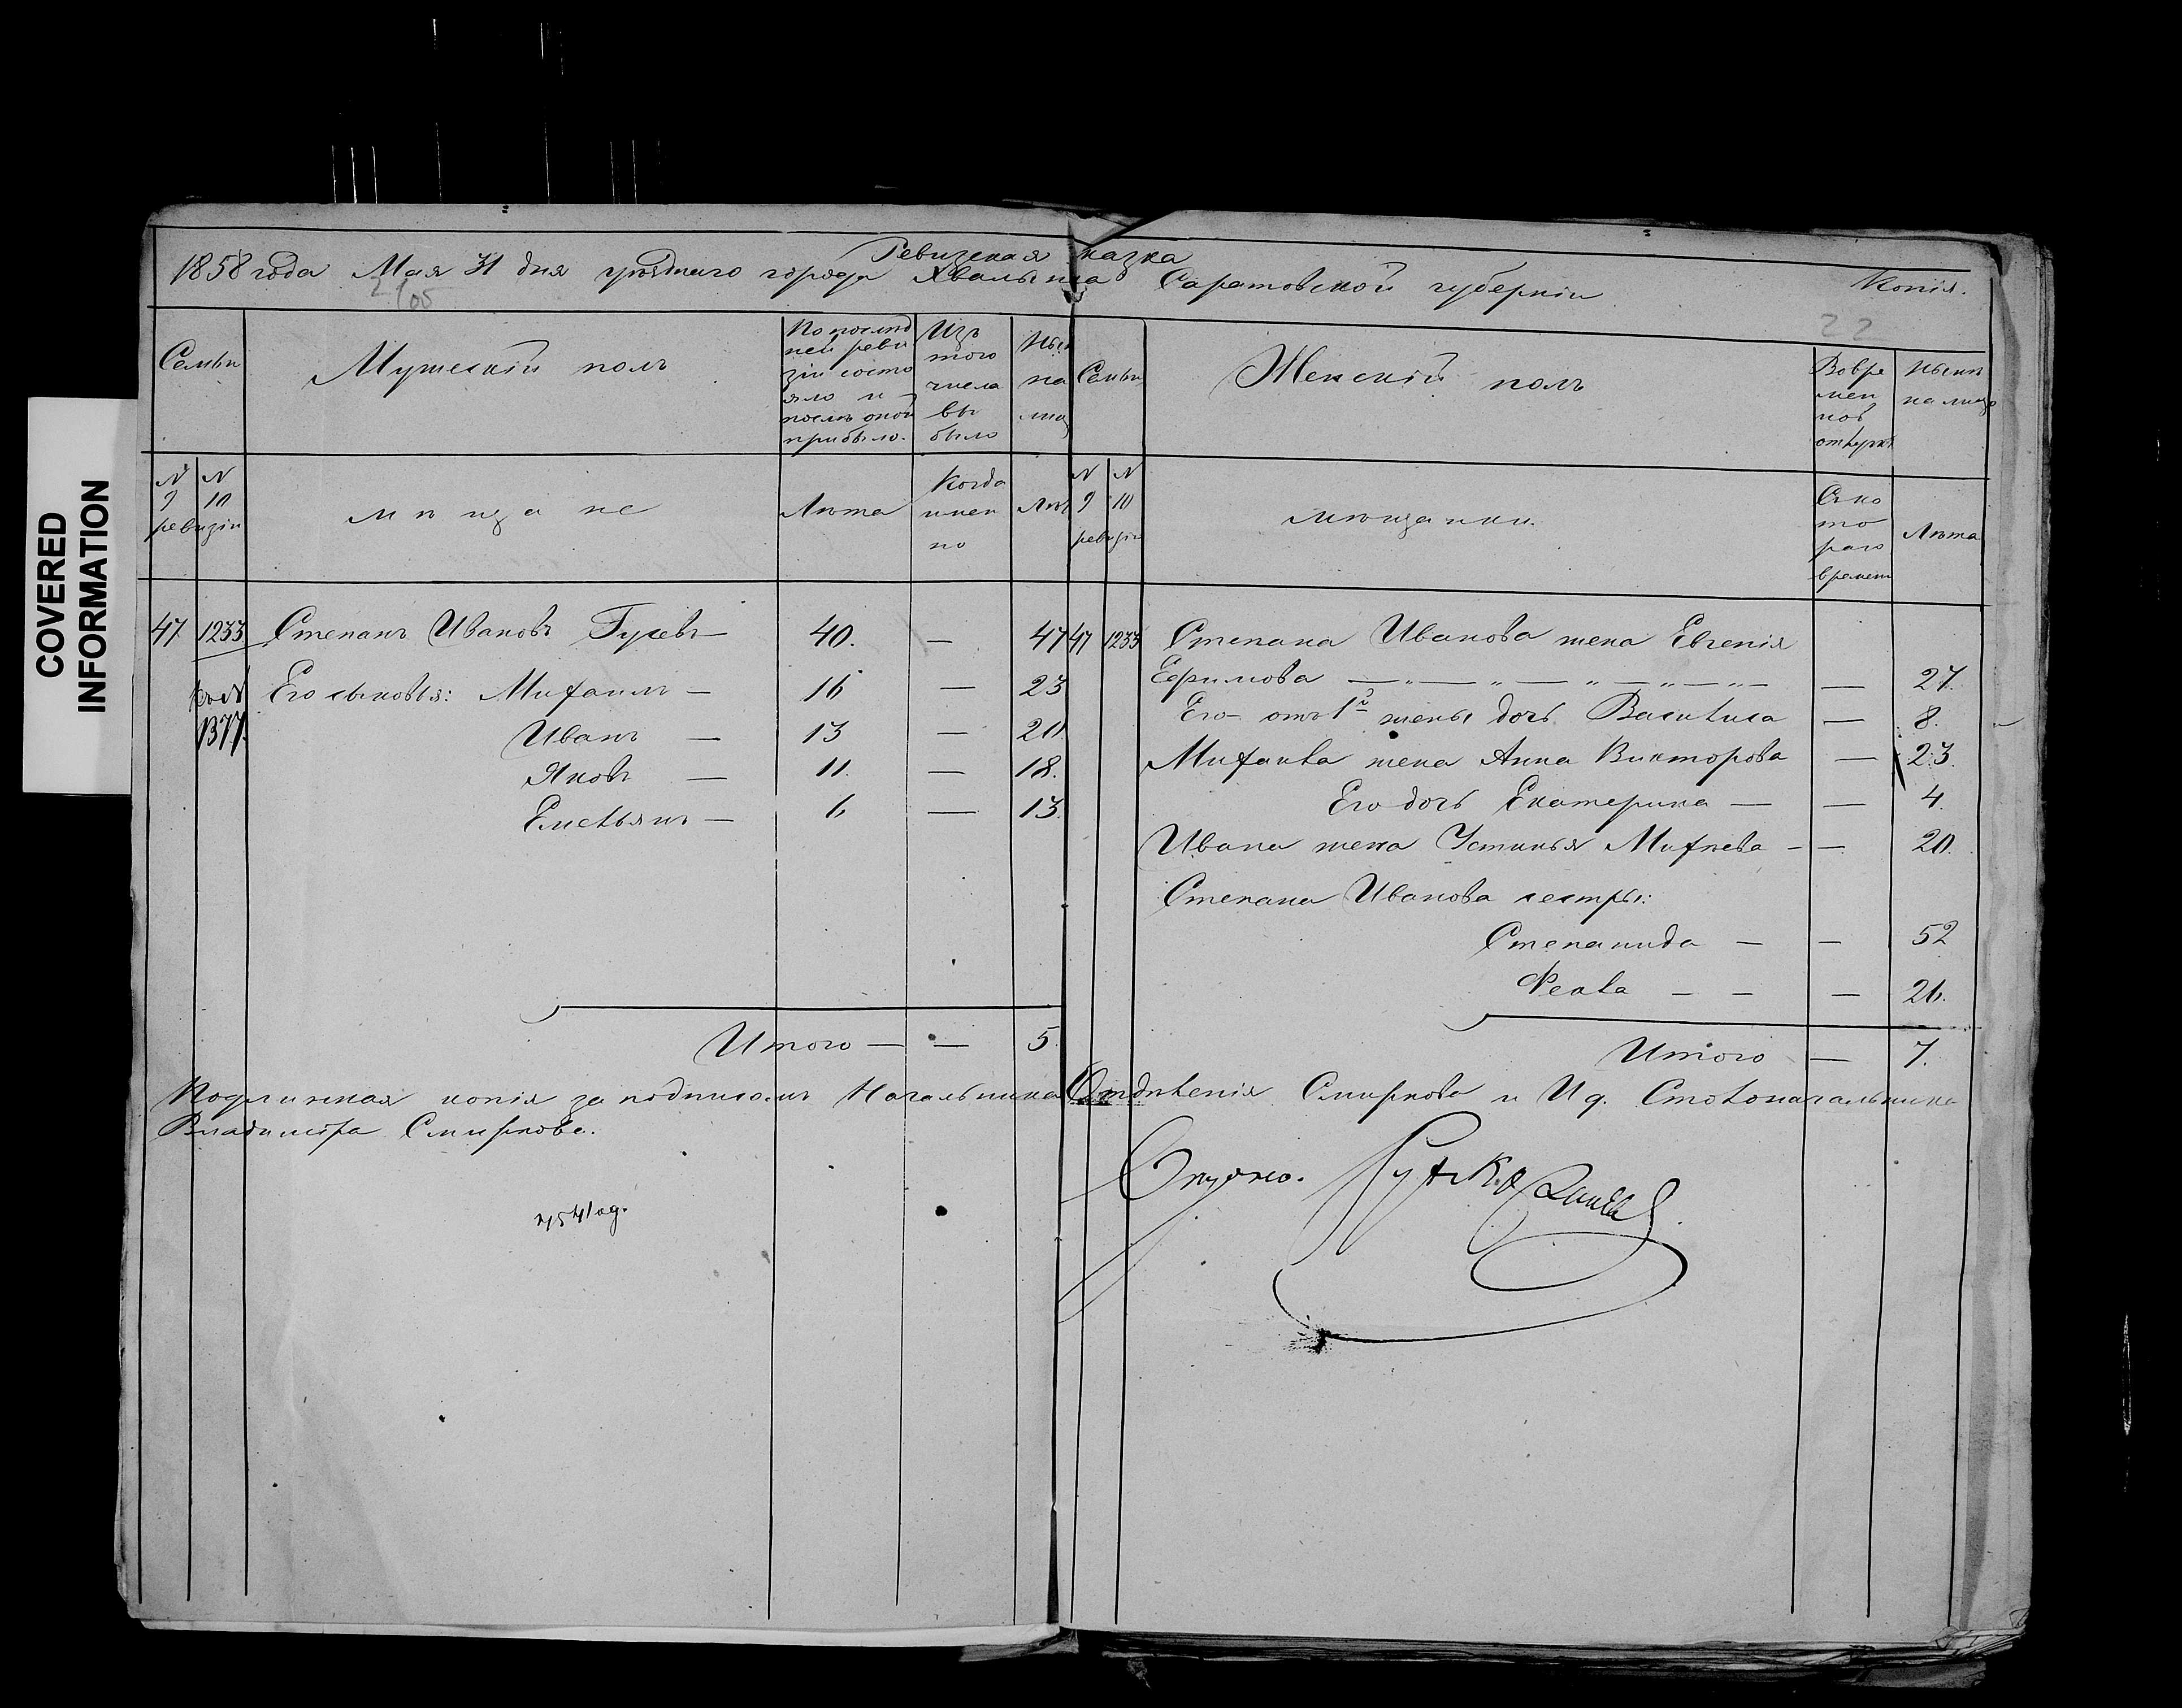 COVERED
INFORMATION
Копія.
Ревизская сказка
1858 года Мая 31 дня уѣзднаго города Хвалынска Саратовской губерніи
2105
22
Семьи
Мужескій полъ
По послѣд
ней реви
зіи состо
яло и
послѣ оной
прибыло.
Изъ
того
числа
вы
было
Нынѣ
на
лицо
№ 9 № 10
ревизіи
мѣщане
Лѣта
Когда
имен
но
Лѣт
47 1233 Степанъ Ивановъ Гусевъ — 40. — 47
Его сыновья: Михаилъ — 16 — 23
1377. Иванъ — 13 — 20.
Яковъ — 11. — 18.
Емельянъ — 6 — 13.
Итого — — 5.
Семьи
Женскій полъ
Во вре
мен
ной
отлучкѣ
Нынѣ
на лицо
№ 9 № 10
ревизіи
мѣщанки.
Съ ко
то
раго
времени
Лѣта
47 1233 Степана Иванова жена Евгенія
Ефимова — „ — „ — „ — „ — „ — — 27.
Его отъ 1й жены дочь Василиса — 8.
Михаила жена Анна Викторова — 23.
Его дочь Екатерина — — 4.
Ивана жена Устинья Михѣева — — 20.
Степана Иванова сестры:
Степанида — — 52
Фекла — — — 26.
Итого — 7.
Подлинная копія за подписомъ Начальника Отдѣленія Смирнова и И д. Столоначальника
Владиміра Смирнова.